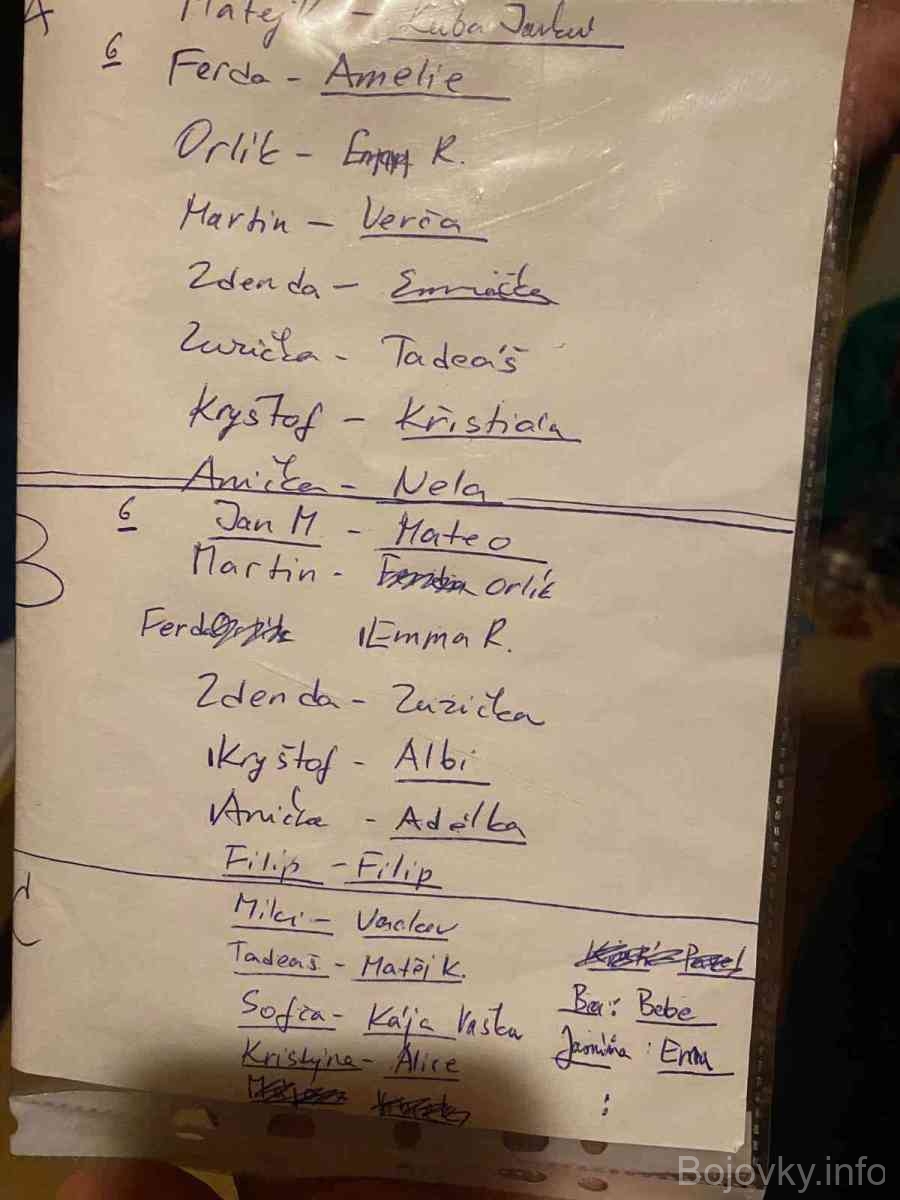 A Matějík - Kuba Jarkul
6 Ferda - Amelie
Orlík - Emmy R.
Martin - Verča
Zdenda - Emmička
Zuzička - Tadeáš
Kryštof - Kristiála
Anička - Nela
B 6 Jan M - Mateo
Martin - Orlík
Ferda Emma R.
Zdenda - Zuzička
Kryštof - Albi
Anička - Adélka
Filip - Filip
C Miki - Vaclav
Tadeáš - Matěj K.
Pavel
Sofča - Kája Vaška
Bea: Bebe
Kristýna - Alice
Jasmína : Ema
:
Bojovky.info